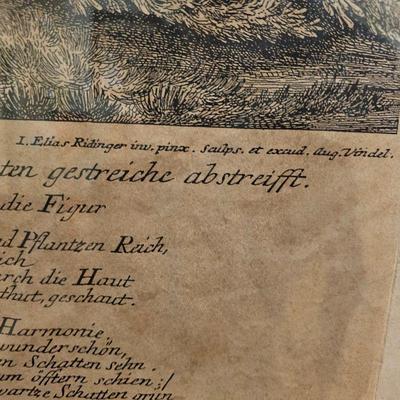 I. Elias Ridinger inv. pinx. Sculps. et excud. Aug. Vindel.
ten gestreiche abstreifft.
die Figur
nd Pflantzen Reich,
ich
rch die Haut
thut, geschaut.
Harmonie
wunderschön,
en Schatten sehn.
um öfftern schien;/
wartze Schatten grün